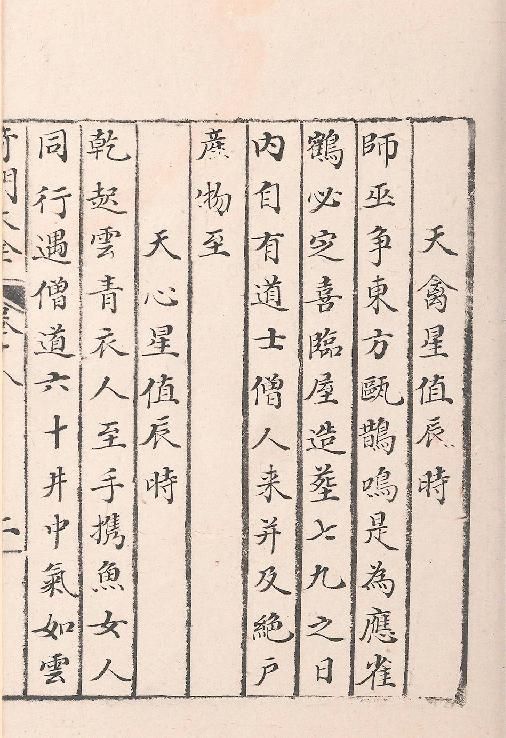 天禽星值辰時
師巫争東方甌鵲鳴是為應雀
鶴必定喜臨屋造塟七九之日
内自有道士僧人来并及絶戸
産物至
天心星值辰時
乾起雲青衣人至手携魚女人
同行遇僧道六十井中氣如雲
奇門大全